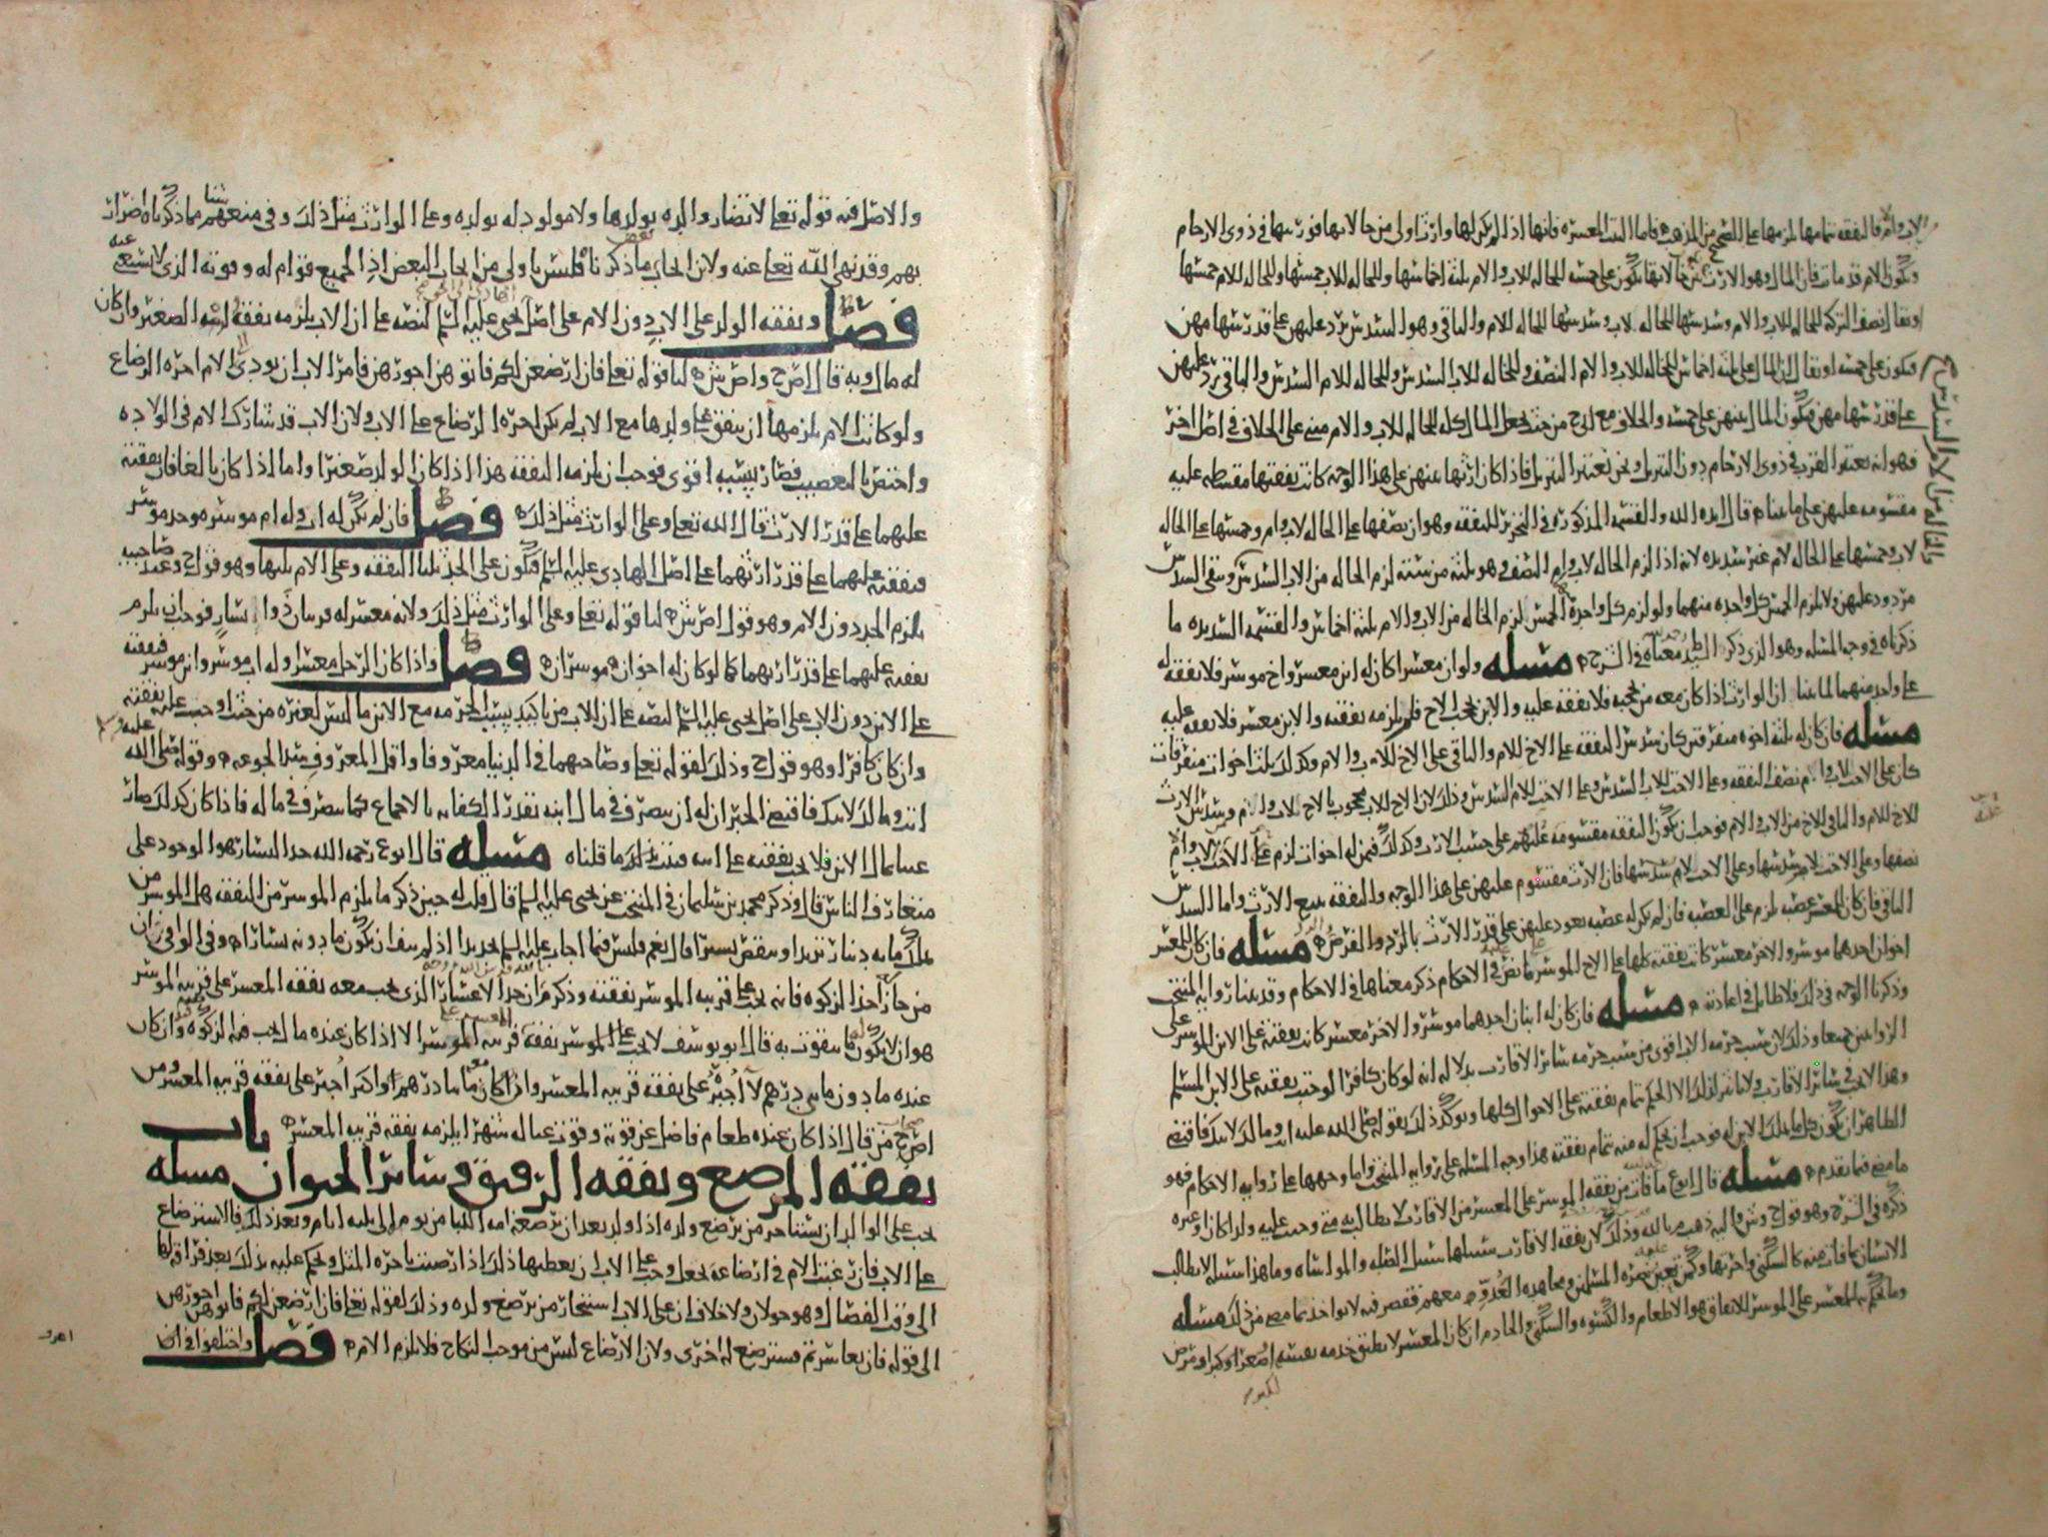 لاب وام فالنفقه تمامها يلزمها على الصحيح من المذهب فاما البنت المعسره فانها اذا لم يكن لها وارث اولى من خالاتها فورثتها في ذوي الارحام
وتكون الام قد ماتت فان المال وهو الارث بين خالاتها يكون على خمسه للخاله للاب والام ثلثه اخماسها وللخاله للاب خمسها وللخاله للام خمسها
او يقال نصف التركه للخاله للاب والام وسدسها للخاله لاب وسدسها للخاله للام والباقي وهو السدس يرد عليهن على قدر سهامهن
فيكون على خمسه او يقال ان المال على ثلثه اخماس للخاله للاب والام النصف وللخاله للاب السدس وللخاله للام السدس والباقي يرد عليهن
على قدر سهامهن فيكون المال بينهن على خمسه والخلاف مع ابي ح من حيث يجعل المال كله للخاله للاب والام مبني على الخلاف في اصل اخر
فهو انه يعتبر القرب في ذوي الارحام دون التنزيل ونحن نعتبر التنزيل فاذا كان ارثها بينهن على هذا الوجه كانت نفقتها مقسطه عليه
مقسومه عليهن على ما بينا قال ايده الله والقسمه المذكوره في التحرير للنفقه وهو ان نصفها على الخاله لاب وام وخمسها على الخاله
لاب وخمسها على الخاله لام غير سديده لانه اذا لزم الخاله لاب وام النصف وهو ثلثه من سته لزم الخاله من الاب السدس وبقي السدس
مردود عليهن ولا يلزم الخمس كل واحده منهما ولو لزم كل واحده الخمس لزم الخاله من الاب والام ثلثه اخماس والقسمه السديده ما
ذكرناه في وجه المسله وهو الذي ذكر السيد ط معناه في الشرح مسله ولو ان معسرا كان له ابن معسر واخ موسر فلا نفقه له
على واحد منهما لما بينا ان الوارث اذا كان معه من يحجبه فلا نفقه عليه والابن يحجب الاخ فلم يلزمه نفقته والابن معسر فلا نفقه عليه
مسله فان كان له ثلثه اخوه متفرقين كان سدس النفقه على الاخ للام والباقي على الاخ للاب والام وكذلك ثلث اخوات متفرقات
كان على الاخت لاب وام نصف النفقه وعلى الاخت للاب السدس وعلى الاخت للام السدس وذلك لان الاخ للاب محجوب بالاخ للاب والام وسدس الارث
للاخ للام والباقي للاخ من الاب والام فوجب ان يكون النفقه مقسومه عليهم على حسب الارث وكذلك فيمن له اخوات لزم على الاخت لاب وام
نصفها وعلى الاخت لاب سدسها وعلى الاخت لام سدسها فان الارث مقسوم عليهن على هذا الوجه والنفقه تتبع الارث واما السدس
الباقي فان كان للمعسر عصبه لزم على العصبه فان لم يكن له عصبه يعود عليهن على قدر الارث بالرد والفرض مسله فان كان للمعسر
اخوان احدهما موسر والاخر معسر كانت نفقته كلها على الاخ الموسر نص عليه في الاحكام ذكر معناها في الاحكام وقد بينا روايه المنتخب
وذكرنا الوجه في ذلك فلا طايل في اعادته مسله فان كان له ابنان احدهما موسر والاخر معسر كانت نفقته على الابن الموسر على
الروايتين جميعا وذلك لان سبب حرمه الاب اقوى من سبب حرمه سائر الاقارب بدلاله انه لو كان كافرا لوجبت نفقته على الابن المسلم
وهذا لا يجب في سائر الاقارب ولا تاثير لذلك الا الحكم بتمام نفقته على الاحوال كلها ويوكد ذلك بقوله صلى الله عليه انت ومالك لابيك فاقتضى
الظاهر ان يكون كل ما يملك الابن له فوجب ان يحكم له منه بتمام نفقته هذا وجه المسله على روايه المنتخب واما وجهها على روايه الاحكام فهو
ما مضى فيما تقدم مسله قال ابو ع ما فات من نفقه الموسر على المعسر من الاقارب لا يطالب به متى وجبت عليه ولدا كان او غيره
ذكره في الشرح وهو قول ح وش واليه ذهب م بالله وذلك لان نفقه الاقارب سبيلها سبيل الصله والمواساه وما هذا سبيله لا يطالب
الانسان بما فات منه كالسكنى واخرتها وكمن تعين عليه نصره المسلمين ومجاهده العدو معهم فقصر فيه لا يواخذ بما مضى من ذلك مسله
وما يحكم به للمعسر على الموسر للانفاق هو الاطعام والكسوه والسكنى والخادم ان كان المعسر لا يطيق خدمه نفسه لصغر او كبر او مرض
والاصل فيه قوله تعالى لا تضار والده بولدها ولا مولود له بولده وعلى الوارث مثل ذلك وفي منعهم شيئا مما ذكرناه اضرار
بهم وقد نهى الله تعالى عنه ولان ايجاب بعض ما ذكرنا ليس باولى من ايجاب البعض اذ الجميع قوام له وقوته الذي لا يستغني عنه
فصل ونفقه الولد على الاب دون الام على اصل يحيى عليه السلم لنصه على ان الاب يلزمه نفقه ابنه الصغير وان كان
له مال وبه قال اص ح واص ش لنا قوله تعالى فان ارضعن لكم فاتوهن اجورهن فامر الاب ان يودي الى الام اجره الرضاع
ولو كانت الام يلزمها ان ينفق على ولدها مع الاب لم يكن اجره الرضاع على الاب ولان الاب قد شارك الام في الولاده
واختص بالتعصيب فصار سببه اقوى فوجب ان يلزمه النفقه هذا اذا كان الولد صغيرا واما اذا كان بالغا فان نفقته
عليهما على قدر الارث قال الله تعالى وعلى الوارث مثل ذلك فصل فان لم يكن له اب وله ام موسره وجد موسر
فنفقته عليهما على قدر ارثهما على اصل الهادي عليه السلم فيكون على الجد ثلثا النفقه وعلى الام ثلثها وهو قول ح وعند صاحبيه
يلزم الجد دون الام وهو قول اص ش لنا قوله تعالى وعلى الوارث مثل ذلك ولانه معسر له قريبان ذوا يسار فوجب ان يلزم
نفقته عليهما على قدر ارثهما كما لو كان له اخوان موسران فصل واذا كان الرجل معسرا وله اب موسر وابن موسر فنفقته
على الابن دون الاب على اصل يحيى عليه السلم لنصه على ان للاب من تاكيد سبب الحرمه مع الابن ما ليس لغيره من حيث اوجب عليه نفقته
وان كان كافرا وهو قول ح وذلك لقوله تعالى وصاحبهما في الدنيا معروفا واقل المعروف سد الجوعه وقوله صلى الله عليه
انت ومالك لابيك فاقتضى الخبر ان له ان يتصرف في مال ابنه بقدر الكفايه بالاجماع كما يتصرف في ماله فاذا كان كذلك صار
غنيا بمال الابن فلا يجب نفقته على ابيه فثبت بذلك ما قلناه مسله قال ابو ع رحمه الله حد اليسار هو الوجود على
متعارف الناس قال وذكر محمد بن سليمان في المنتخب عن يحيى عليه السلم قال قلت له حين ذكر ما يلزم الموسر من النفقه هل الموسر من
يملك مايه دينار تزيد او ينقص يسيرا قال نعم فليس فيما اجاب عليه السلم تحديدا اذ لم ينف ان يكون ما دونه يسارا وفي الوافي ان
من جاز اخذ الزكوه فانه يجب على قريبه الموسر نفقته وذكر م ان حد الاعسار الذي يجب معه نفقه المعسر على قريبه الموسر
هو ان لا يكون له ما يتقوت به قال ابو يوسف لا يجب على الموسر نفقه قريبه المعسر الا اذا كان عنده ما يجب فيه الزكوه وان كان
عنده ما دون مايتي درهم لا اجبره على نفقه قريبه المعسر واذا كان معه مايتا درهم او اكثر اجبر على نفقه قريبه المعسر ومن
اص ح من قال اذا كان عنده طعام فاضل عن قوته وقوت عياله شهرا يلزمه نفقه قريبه المعسر باب
نفقه المرضع ونفقه الرقيق وسائر الحيوان مسله
يجب على الوالد ان يستاجر من يرضع ولده اذا ولد بعد ان ترضعه امه اللبا من يوم الى ثلثه ايام وبعد ذلك فالاسترضاع
على الاب فان رغبت الام في ارضاعه بجعل وجب على الاب ان يعطيها ذلك اذا رضيت باجره المثل ويحكم عليه بذلك بعد فراقها
الى وقت الفصال وهو حولان ولا خلاف ان على الاب استئجار من يرضع ولده وذلك لقوله تعالى فان ارضعن لكم فاتوهن اجورهن
الى قوله فان تعاسرتم فسترضع له اخرى ولان الارضاع ليس من موجب النكاح فلا يلزم الام فصل واختلفوا في ان